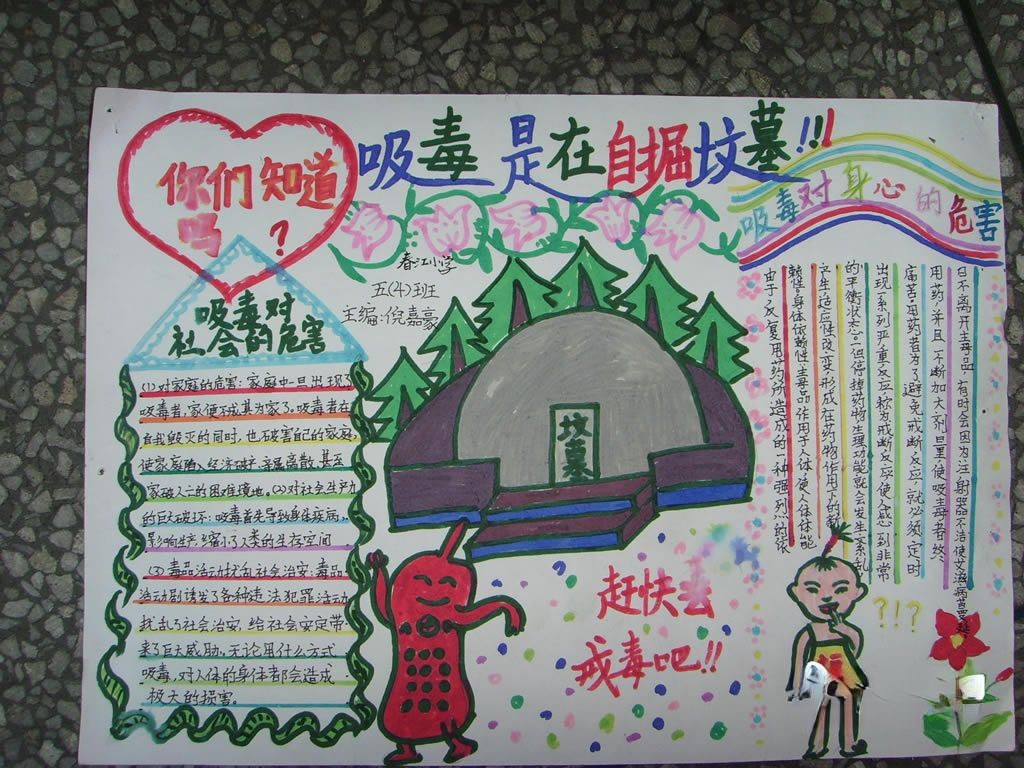 吸毒是在自掘坟墓!!!
你们知道
吗?
春江小学
五(4)班
主编:倪嘉豪
吸毒对
社会的危害
(1)对家庭的危害:家庭中一旦出现了
吸毒者,家便不成其为家了。吸毒者在
自我毁灭的同时,也破害自己的家庭,
使家庭陷入经济破产、亲属离散、甚至
家破人亡的困难境地。(2)对社会生产力
的巨大破坏:吸毒首先导致身体疾病,
影响生产,缩小了人类的生存空间
(3)毒品活动扰乱社会治安:毒品
活动剧诱发了各种违法犯罪活动,
扰乱了社会治安,给社会安定带
来了巨大威胁。无论用什么方式
吸毒,对人体的身体都会造成
极大的损害。
坟墓
赶快去
戒毒吧!!
吸毒对身心的危害
由于反复用药所造成的一种强烈的依
赖性。身体依赖性主毒品作用于人体,使人体体能
产生适应性改变,形成在药物作用下的新
的平衡状态。一但停掉药物,生理功能就会发生紊乱,
出现一系列严重反应,称为戒断反应,使人感到非常
痛苦。用药者为了避免戒断反应,就必须定时
用药,并且不断加大剂量,使吸毒者终
日不离开主毒品,有时会因为注射器不洁使艾滋病蔓延
?!?